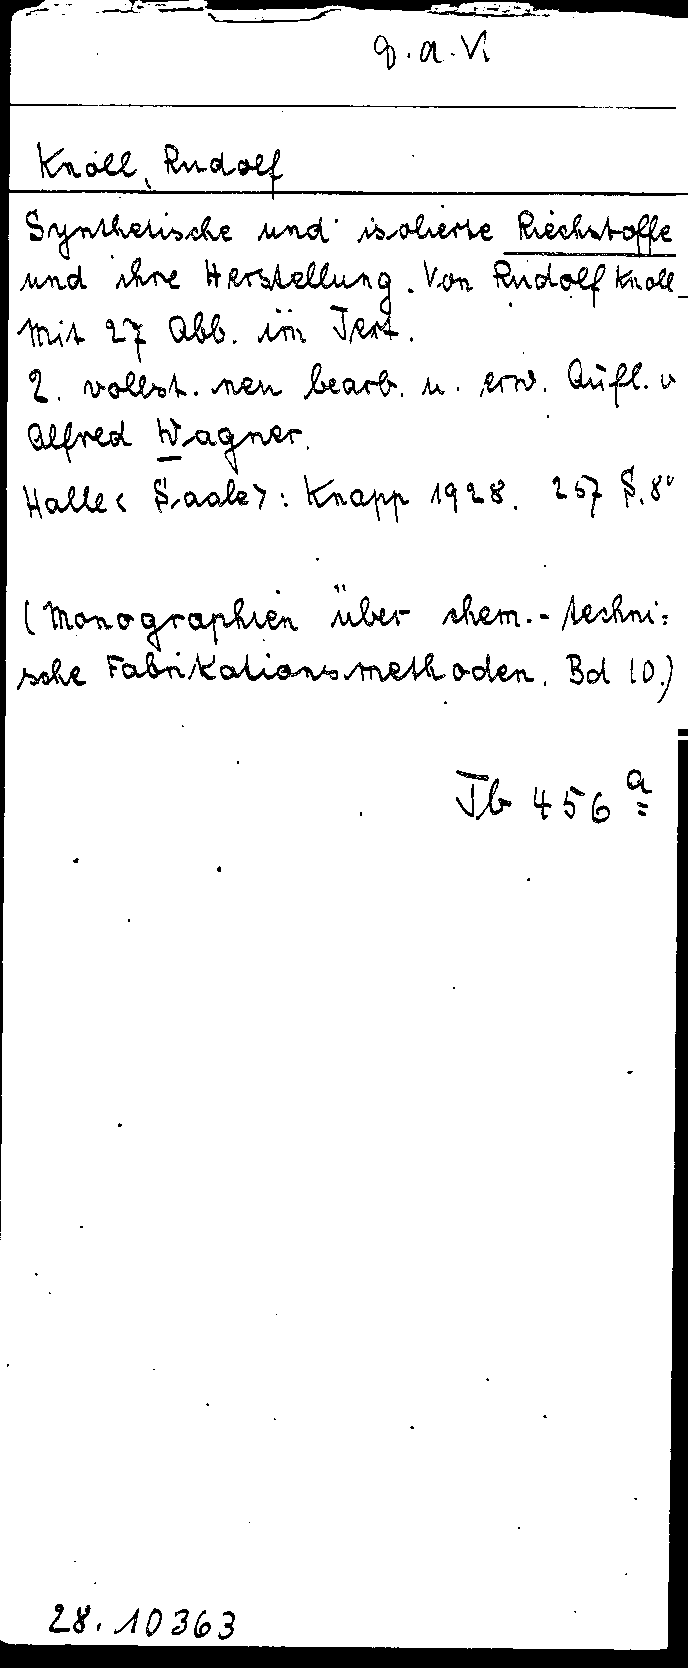 g.a.VI
Knoll, Rudolf
Synthetische und isolierte Riechstoffe
und ihre Herstellung. Von Rudolf Knoll
Mit 27 Abb. im Text.
2. vollst. neu bearb. u. erw. Aufl. v
Alfred Wagner.
Halle<Saale>: Knapp 1928. 257 S. 8°
(Monographien über chem.-techni=
sche Fabrikationsmethoden. Bd 10.)
Tb 456 a
28. 10363